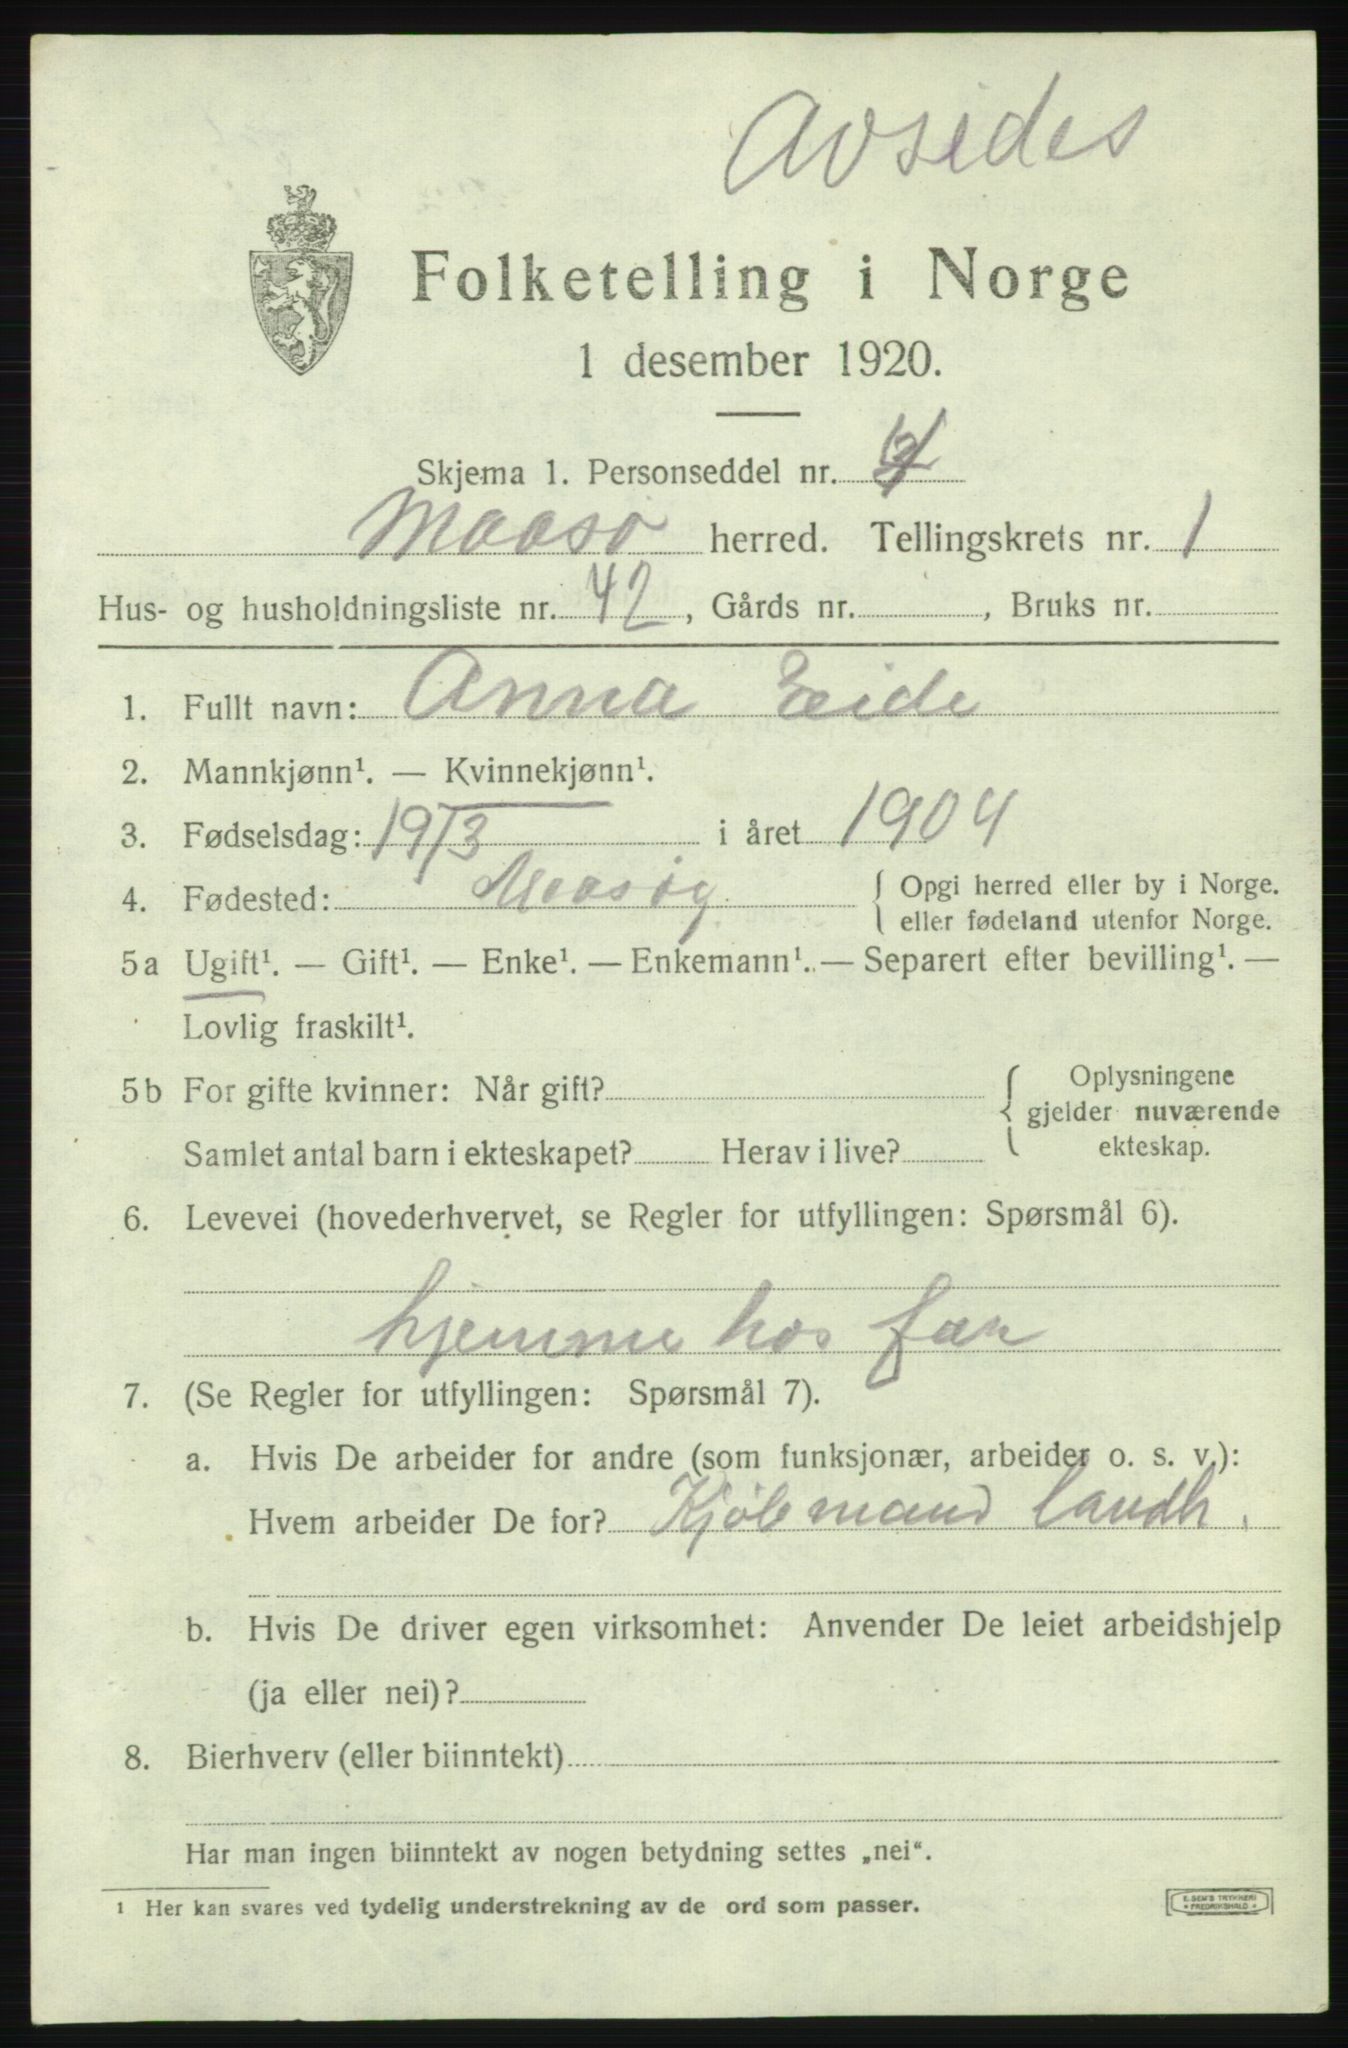 Avsides
Folketelling i Norge
1 desember 1920.
Skjema 1. Personseddel nr.
Maasø herred. Tellingskrets nr. 1
Hus- og husholdningsliste nr. 42, Gårds nr. , Bruks nr.
1. Fullt navn: Anna Eide
2. Mannkjønn¹. — Kvinnekjønn¹.
3. Fødselsdag: 19/3 i året 1904
4. Fødested: Maasøy { Opgi herred eller by i Norge.
eller fødeland utenfor Norge.
5a Ugift¹. — Gift¹. — Enke¹. — Enkemann¹. — Separert efter bevilling¹. —
Lovlig fraskilt¹.
5b For gifte kvinner: Når gift? { Oplysningene
gjelder nuværende
Samlet antal barn i ekteskapet? Herav i live? ekteskap.
6. Levevei (hovederhvervet, se Regler for utfyllingen: Spørsmål 6).
hjemme hos far
7. (Se Regler for utfyllingen: Spørsmål 7).
a. Hvis De arbeider for andre (som funksjonær, arbeider o. s. v.):
Hvem arbeider De for? Kjøbmand landh.
b. Hvis De driver egen virksomhet: Anvender De leiet arbeidshjelp
(ja eller nei)?
8. Bierhverv (eller biinntekt)
Har man ingen biinntekt av nogen betydning settes „nei“.
¹ Her kan svares ved tydelig understrekning av de ord som passer.
E. SEM'S TRYKKERI
* FREDRIKSHALD *